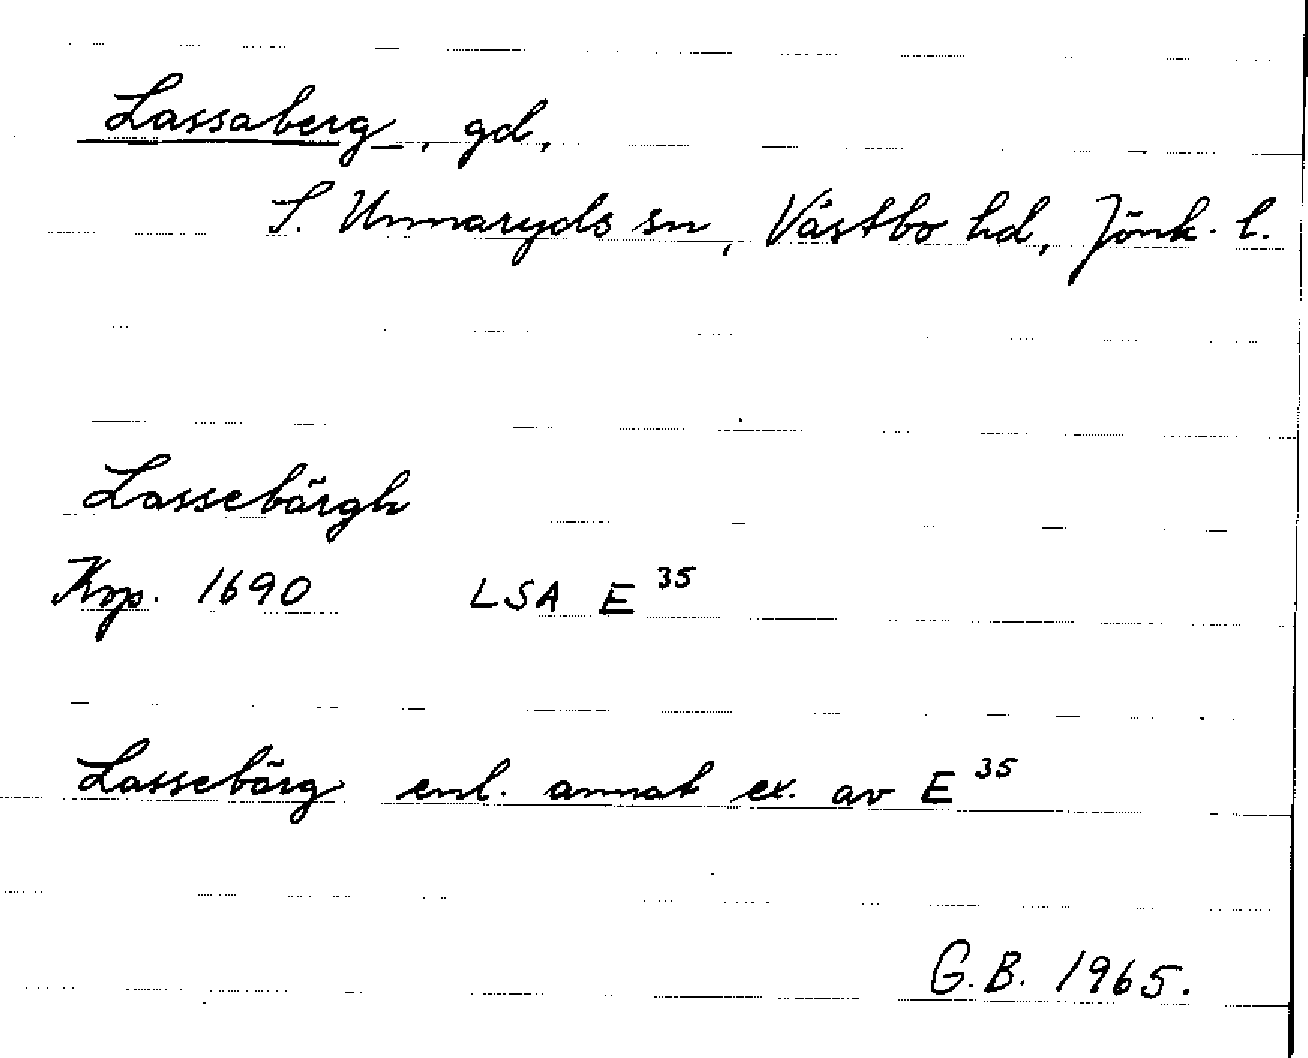 Lassaberg, gd,
S. Unnaryds sn, Västbo hd, Jönk. l.
Lassebärgh
Krp. 1690 LSA E 35
Lassebärg enl. annat ex. av E 35
G.B. 1965.